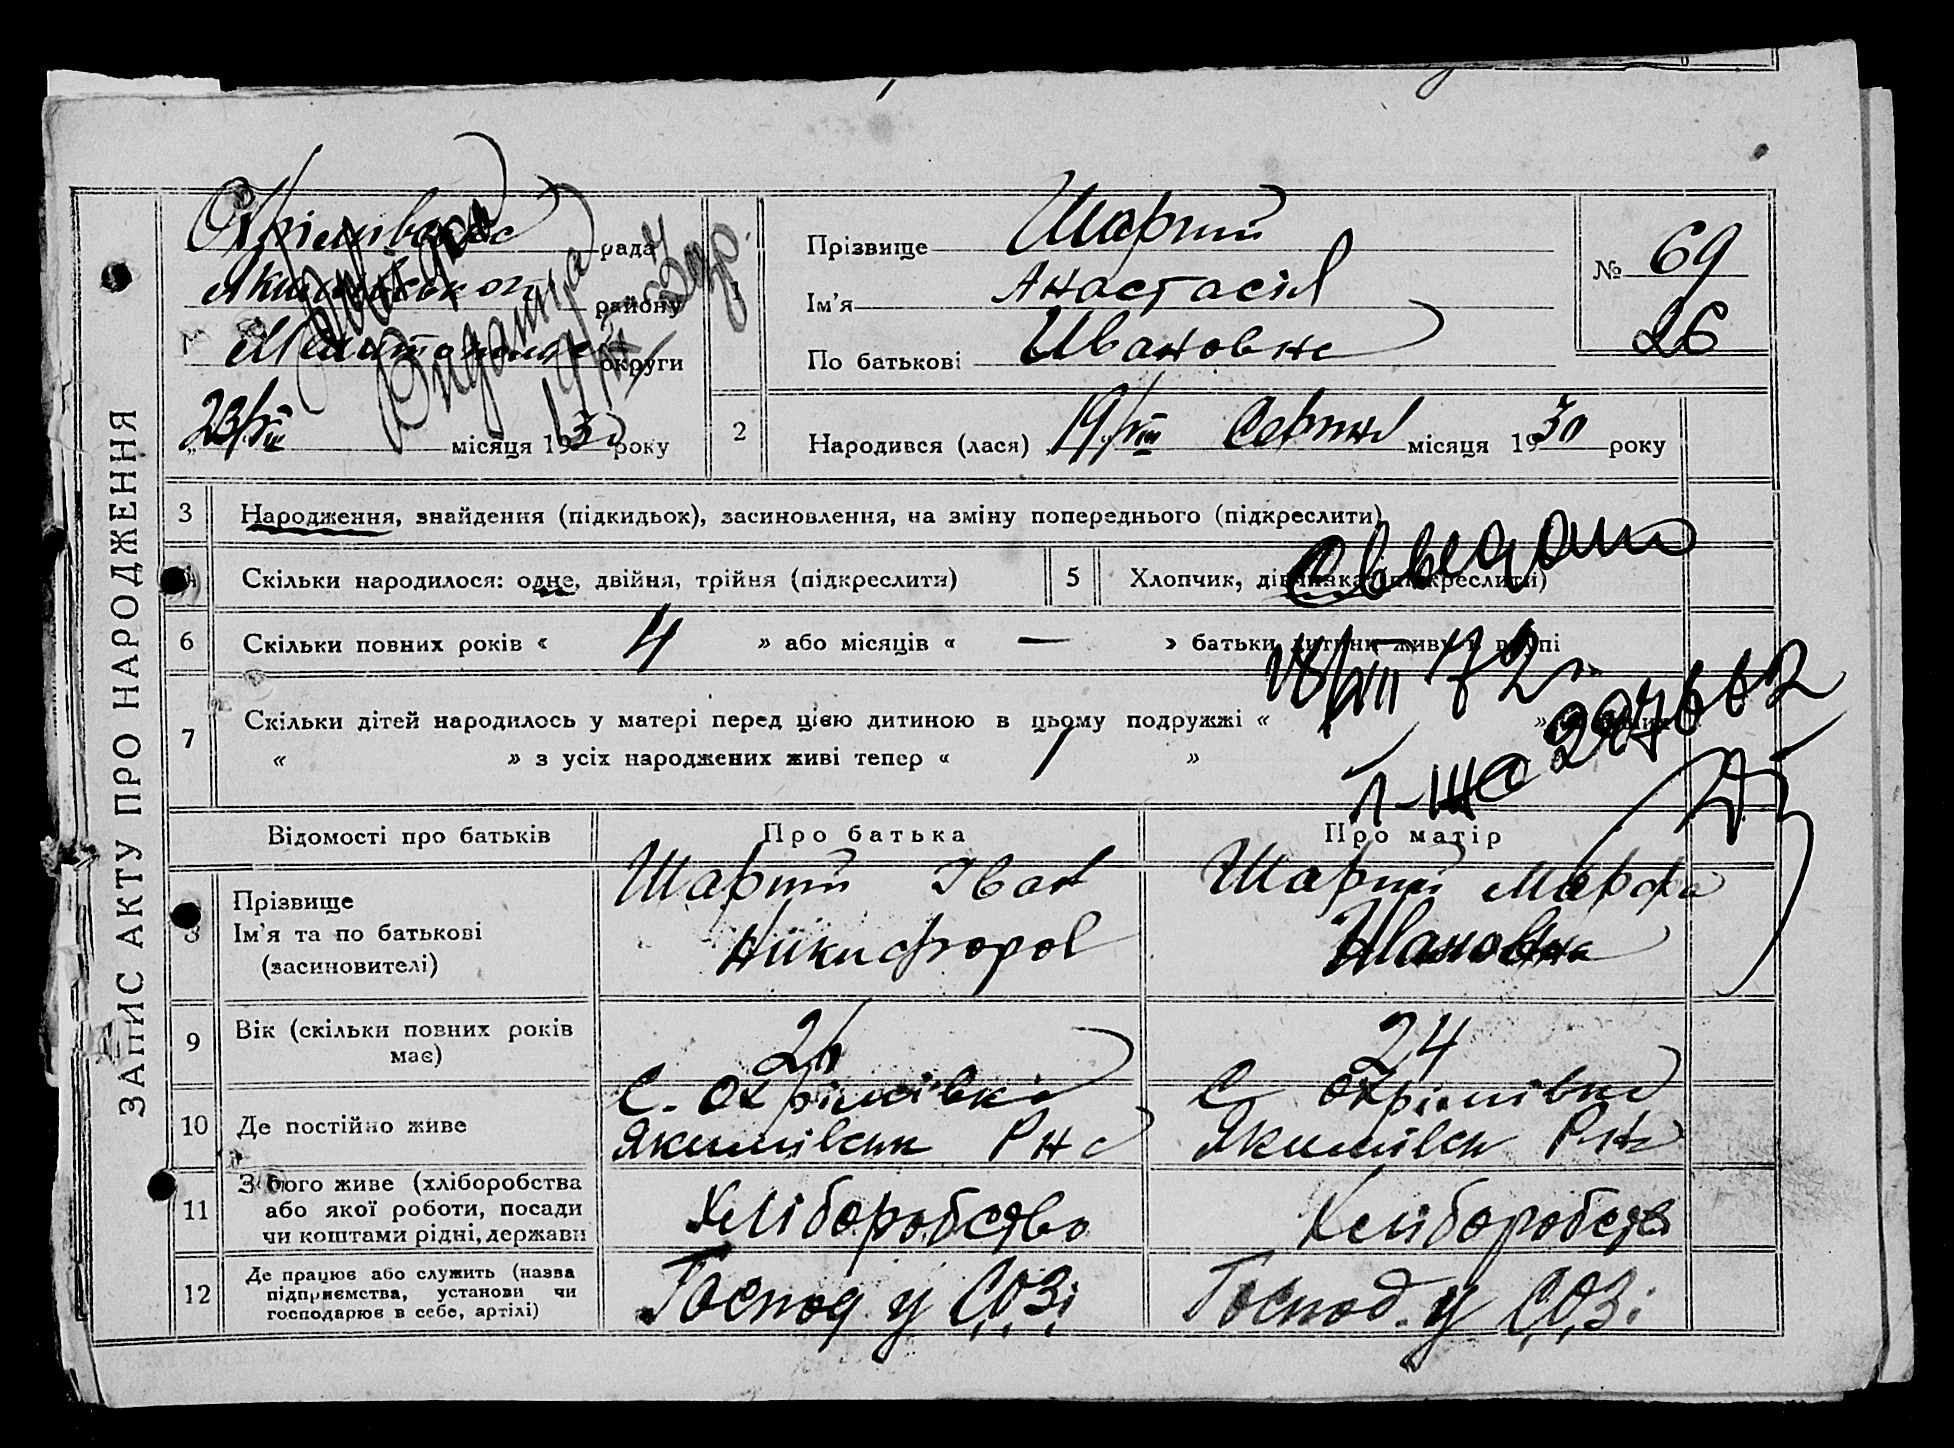 ЗАПИС АКТУ ПРО НАРОДЖЕННЯ
Охрімівська рада
Якимівського району
Мелітопольс округи
23/VIII місяця 1930 року
Видана
1
Прізвище Шарий
Ім’я Анастасія
По батькові Ивановна
№ 69
26
2
Народився (лася) „19/VIII Серпня місяця 1930 року
3
Народження, знайдення (підкидьок), засиновлення, на зміну попереднього (підкреслити)
4
Скільки народилося: одне, двійня, трійня (підкреслити)
5
Хлопчик, дівчинка (підкреслити)
6
Скільки повних років « 4 » або місяців « — » батьки дитини живуть вкупі
18/VIII 72 г.
7
Скільки дітей народилось у матері перед цією дитиною в цьому подружжі « »
« » з усіх народжених живі тепер « 1 »
Відомості про батьків
Про батька
Про матір
8
Прізвище
Ім’я та по батькові
(засиновителі)
Шарий Іван
Никифоров
Шарий Марфа
Ивановна
9
Вік (скільки повних років
має)
26
24
10
Де постійно живе
С. Охрімівка
Якимівськ Рна
С. Охрімівка
Якимівськ Рна
11
З чого живе (хліборобства
або якої роботи, посади
чи коштами рідні, держави
Хліборобство
Хліборобств
12
Де працює або служить (назва
підприємства, установи чи
господарює в себе, артілі)
Господ. у СОЗі
Господ. у СОЗі